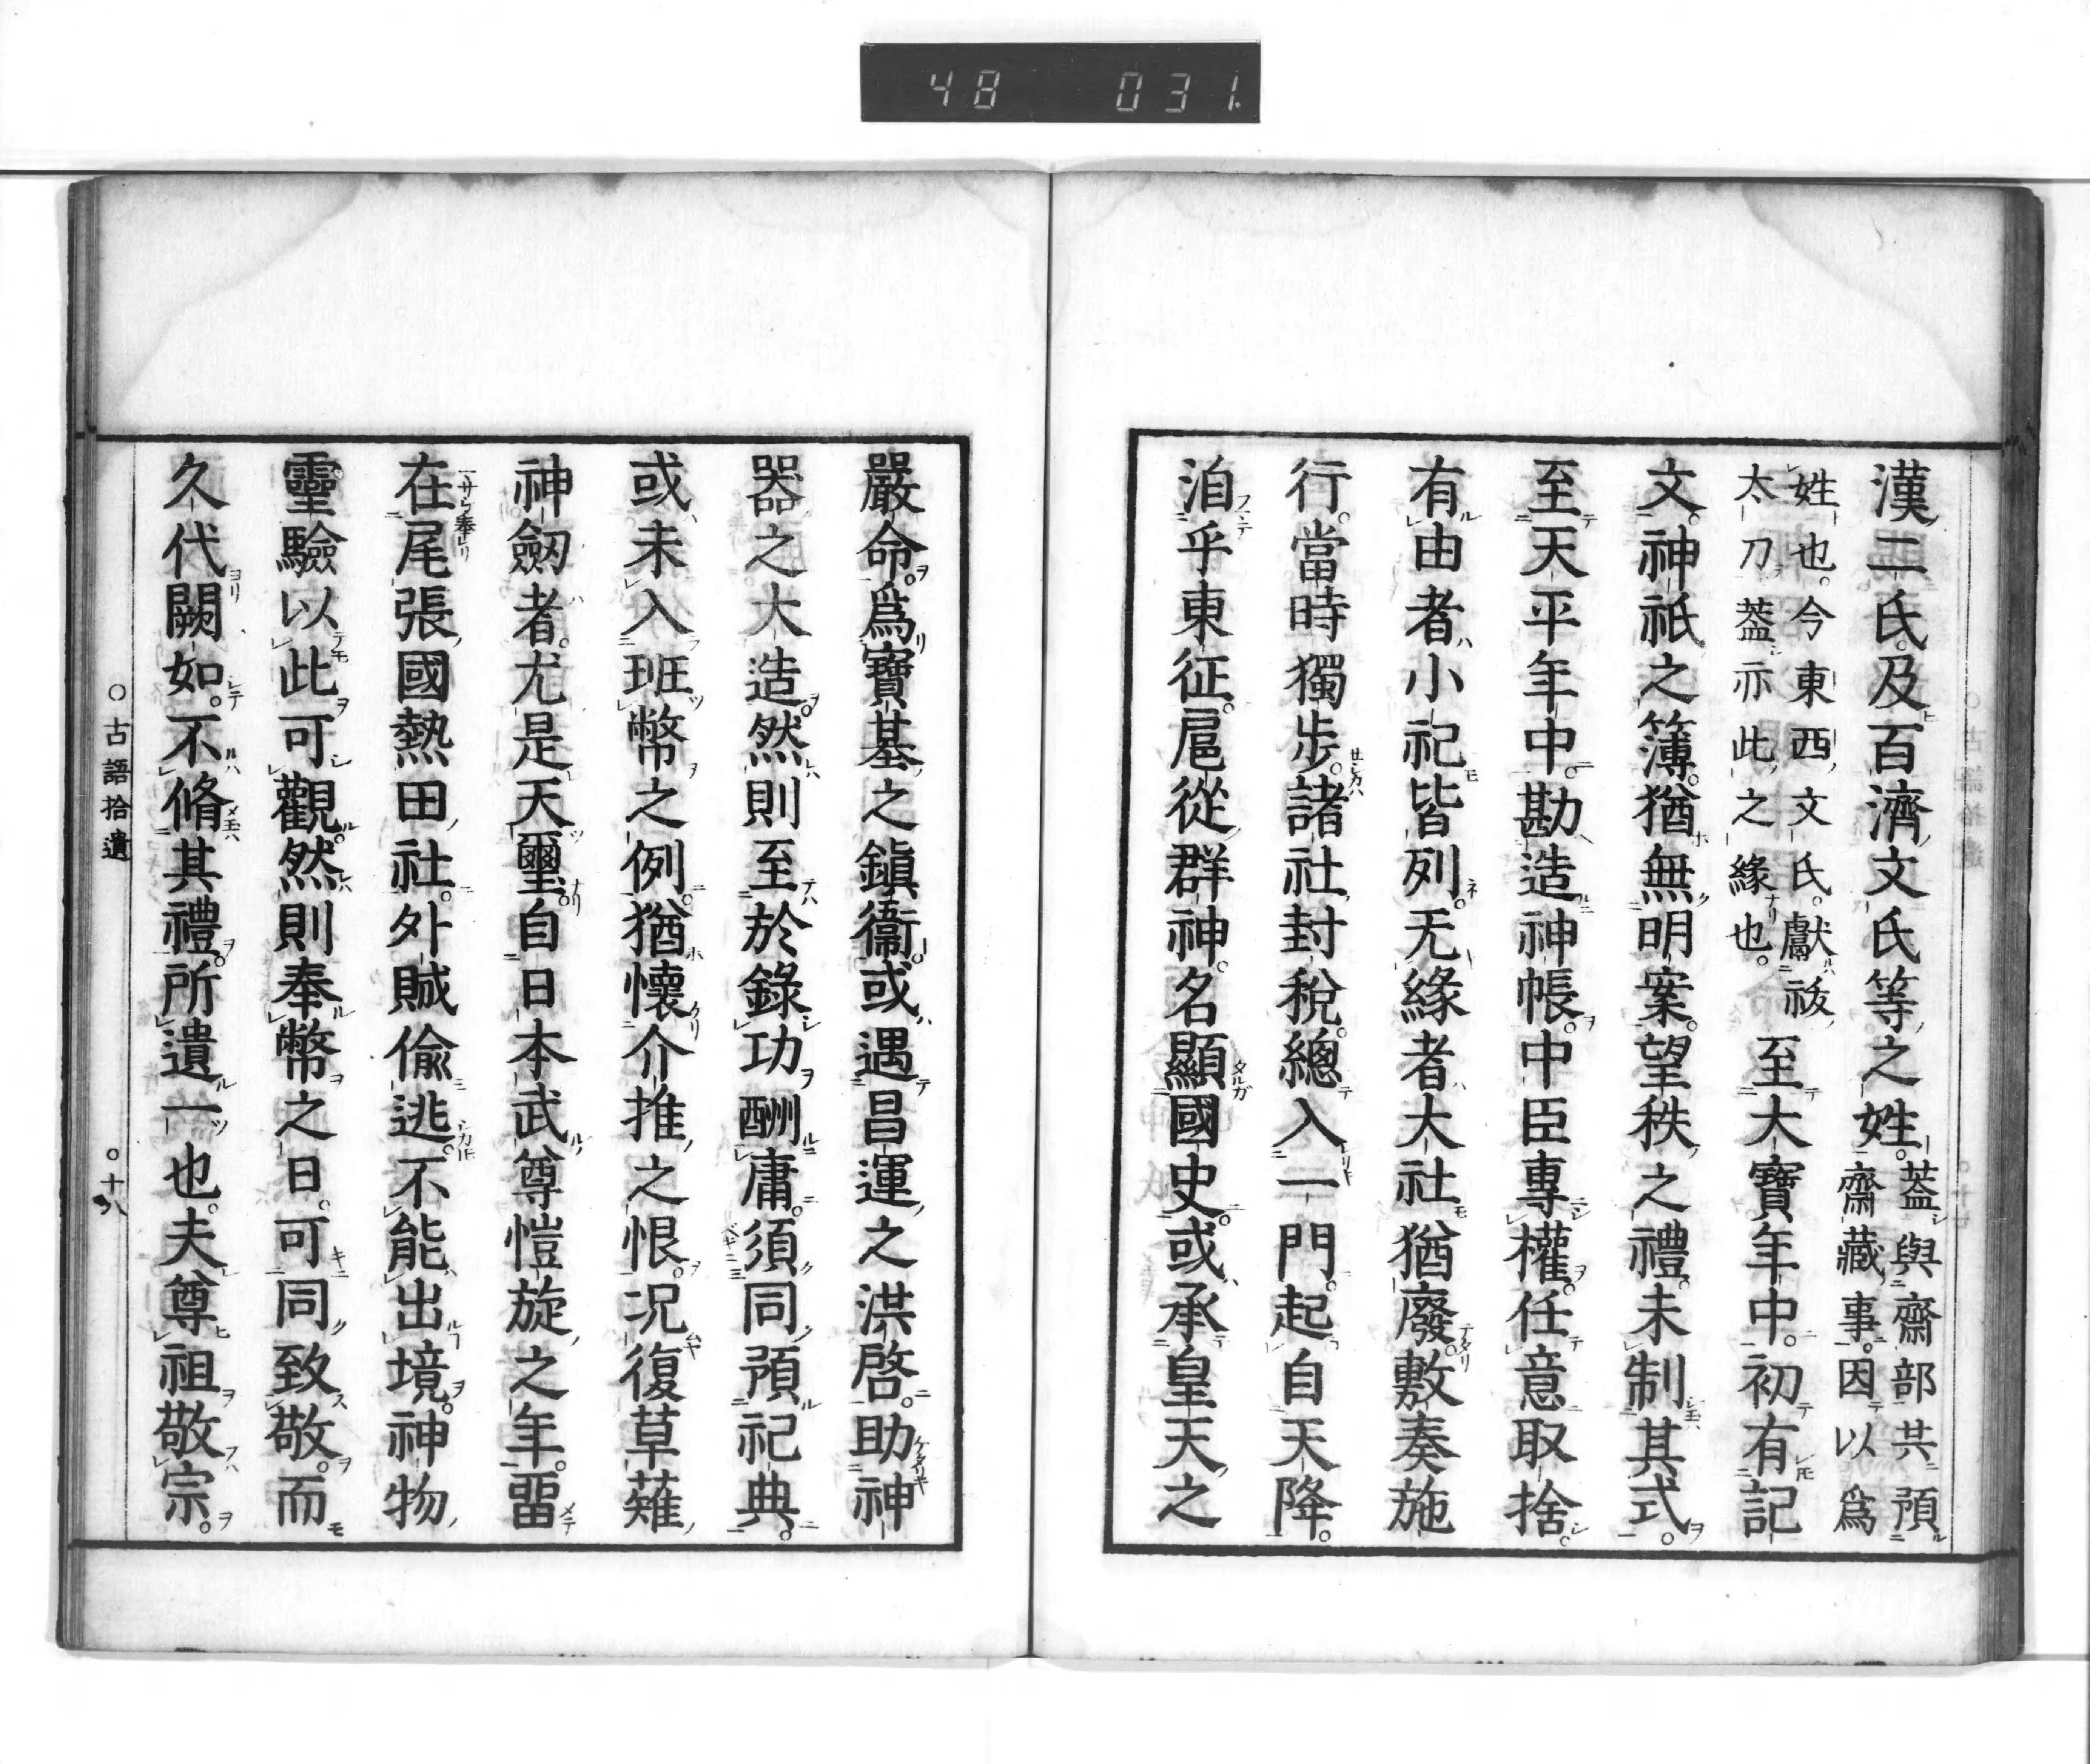 48 031.
漢二氏及百濟文氏等之姓。蓋與齋部共預
齋藏事。因以爲
姓也。今東西文氏。獻祓
太刀蓋亦此之緣也。至大寶年中。初有記
文。神祇之簿。猶無明案。望秩之禮。未制其式。
至天平年中。勘造神帳。中臣專權。任意取捨。
有由者小祀皆列。无緣者大社猶廢。敷奏施
行。當時獨步。諸社封稅。總入一門。起自天降。
洎乎東征。扈從群神。名顯國史。或承皇天之
嚴命。爲寶基之鎮衞。或遇昌運之洪啓。助神
器之大造。然則至於錄功酬庸。須同預祀典。
或未入班幣之例。猶懷介推之恨。况復草薙
神劔者。尤是天璽。自日本武尊愷旋之年。畱
在尾張國熱田社。外賊偸逃。不能出境。神物
靈驗以此可觀。然則奉幣之日。可同致敬。而
久代闕如。不脩其禮。所遺一也。夫尊祖敬宗。
○古語拾遺 ○十八